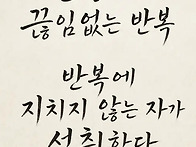 끊임없는 반복
반복에
지치지 않는 자가
성취한다